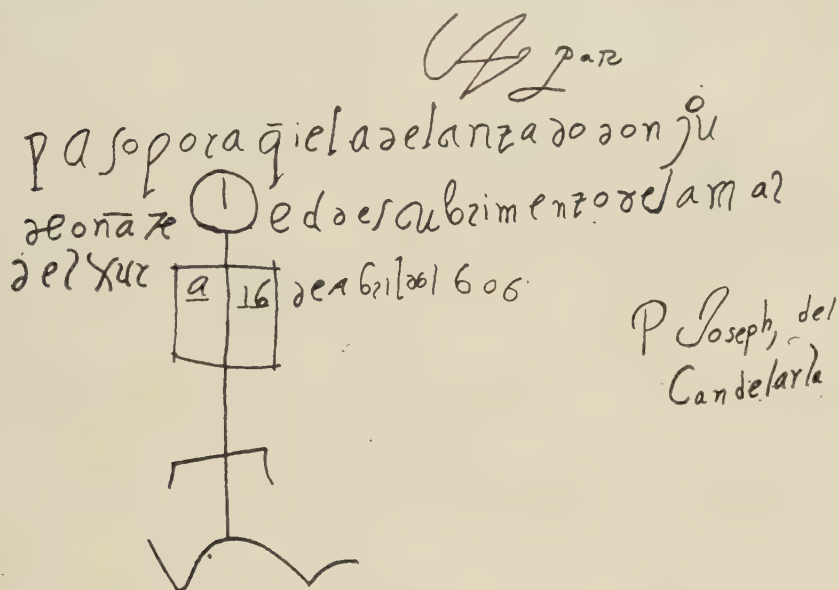 par
pasoporaq̄ieladelanzadodonjũ
deonãte ed descubrimentodelamar
delxur a 16 deabrildel 606
P Joseph, del
Candelarla